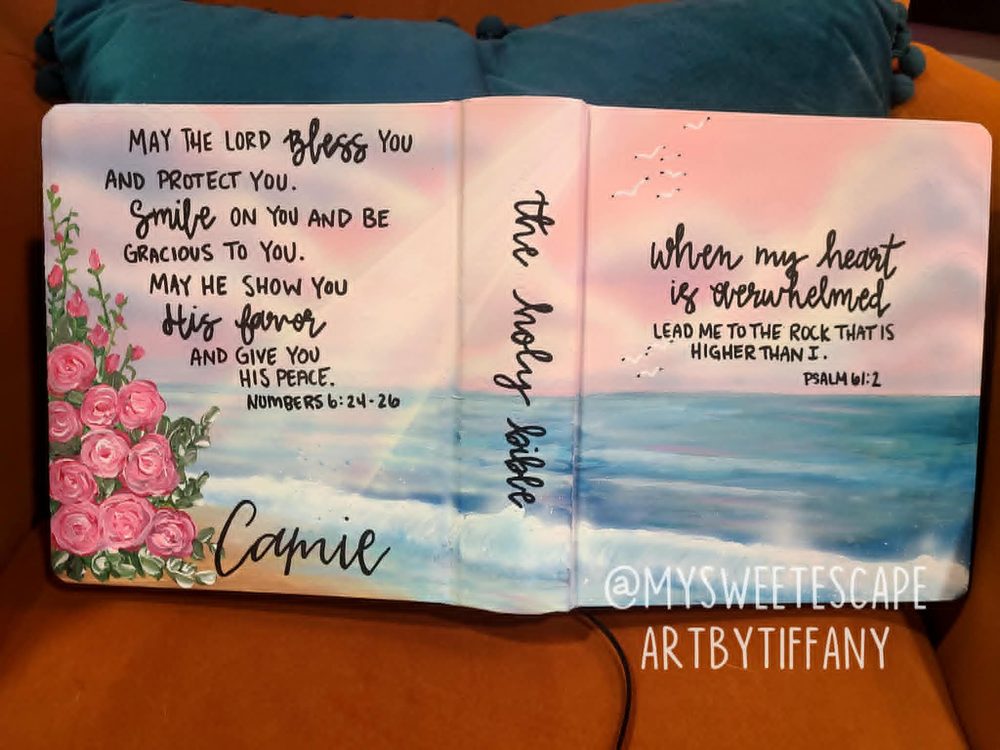 MAY THE LORD Bless YOU
AND PROTECT YOU.
Smile ON YOU AND BE
GRACIOUS TO YOU.
MAY HE SHOW YOU
His favor
AND GIVE YOU
HIS PEACE.
NUMBERS 6:24-26
Camie
the holy bible
when my heart
is overwhelmed
LEAD ME TO THE ROCK THAT IS
HIGHER THAN I.
PSALM 61:2
@MYSWEETESCAPE
ARTBYTIFFANY